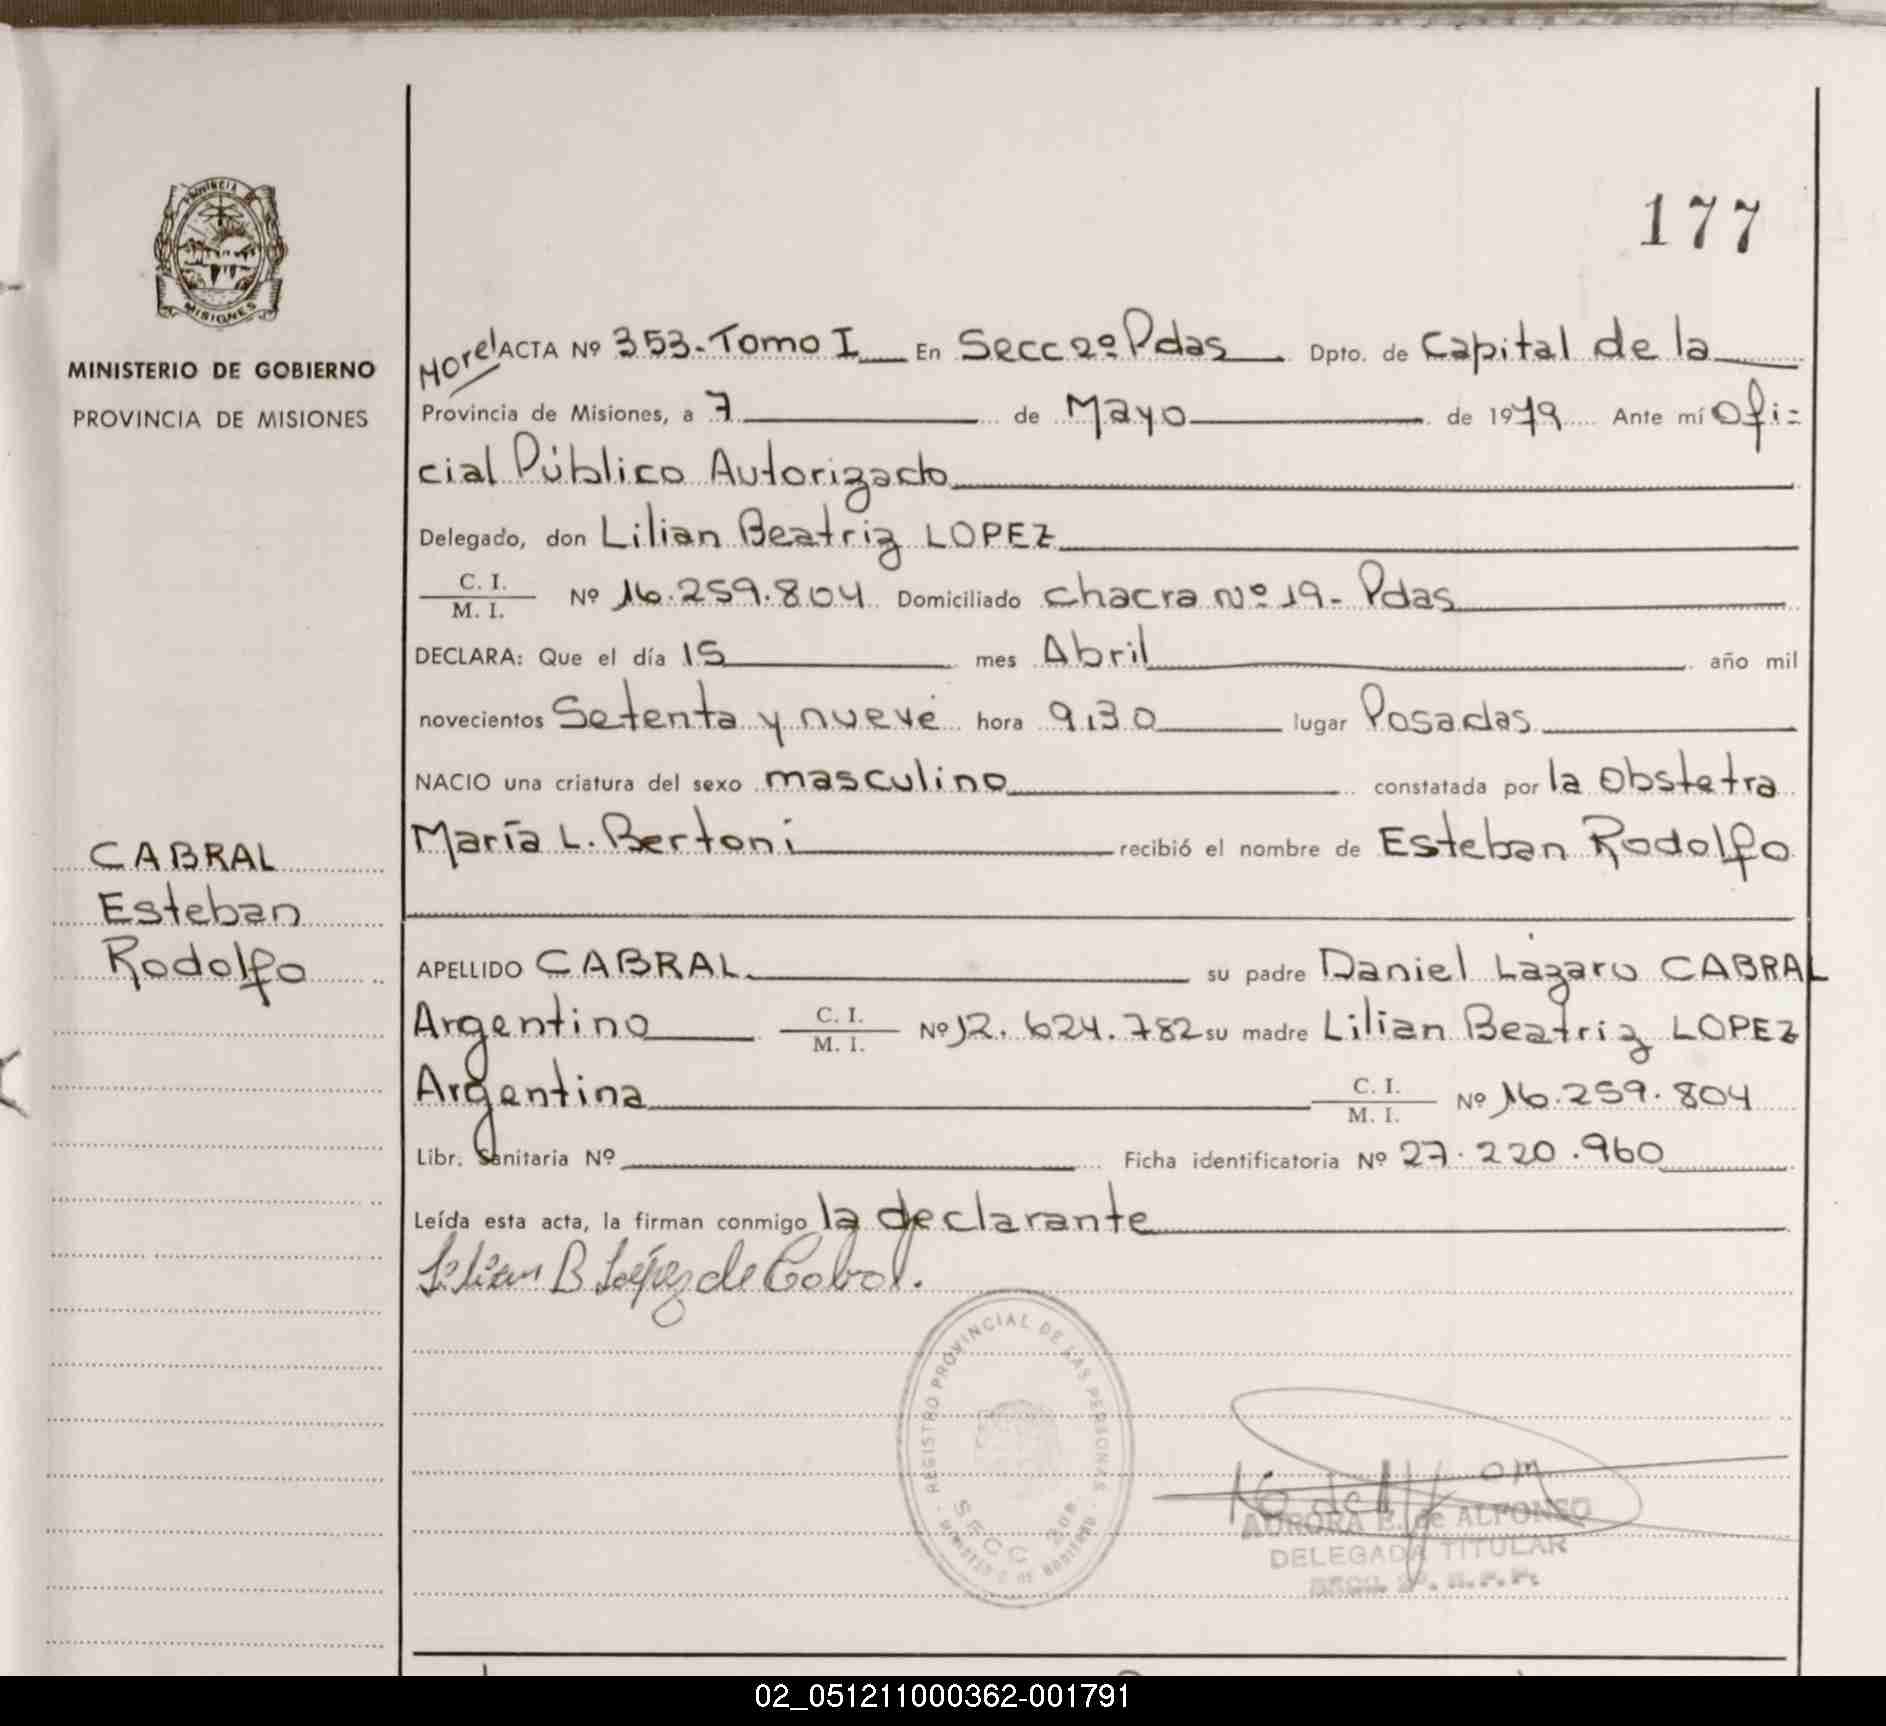 177
PROVINCIA
MISIONES
MINISTERIO DE GOBIERNO
PROVINCIA DE MISIONES
CABRAL
Esteban
Rodolfo
Morel ACTA Nº 353. Tomo I En Secc 2º Pdas Dpto. de Capital de la
Provincia de Misiones, a 7 de Mayo de 1979 Ante mí Ofi=
cial Público Autorizado
Delegado, don Lilian Beatriz LOPEZ
C. I.
M. I. Nº 16.259.804 Domiciliado chacra Nº 19- Pdas
DECLARA: Que el día 15 mes Abril año mil
novecientos Setenta y nueve hora 9,30 lugar Posadas
NACIO una criatura del sexo masculino constatada por la Obstetra
María L. Bertoni recibió el nombre de Esteban Rodolfo
APELLIDO CABRAL su padre Daniel Lázaro CABRAL
Argentino C. I. M. I. Nº 12.624.782 su madre Lilian Beatriz LOPEZ
Argentina C. I. M. I. Nº 16.259.804
Libr. Sanitaria Nº Ficha identificatoria Nº 27.220.960
Leída esta acta, la firman conmigo la declarante
Lilian B López de Cabral.
REGISTRO PROVINCIAL DE LAS PERSONAS
SECC 2da
AURORA E. de ALFONSO
DELEGADA TITULAR
SECC. 2º. R.P.P.
02_051211000362-001791